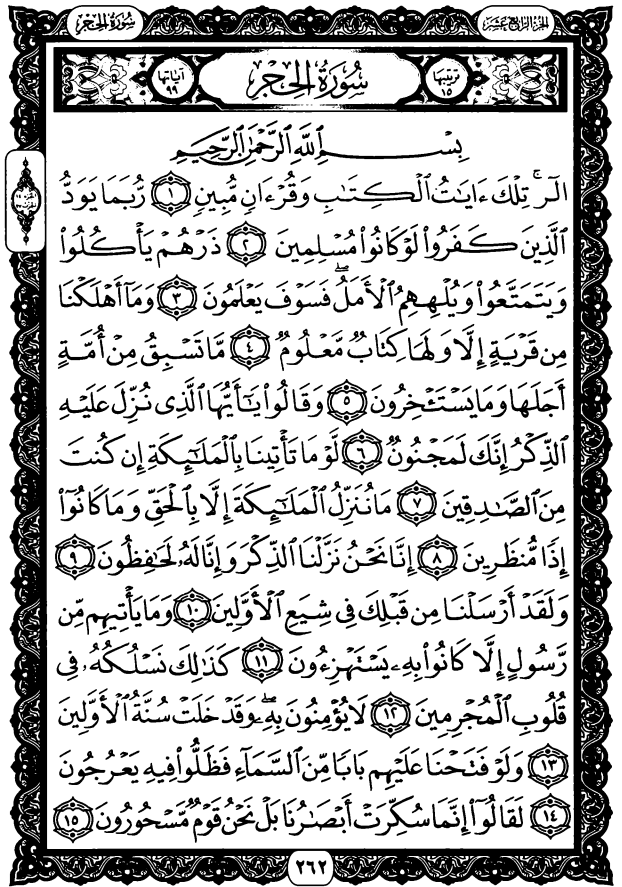 سُورَةُ الحِجْرِ
الجُزْءُ الرَّابِعَ عَشَرَ
ترتيبها ١٥
سُورَةُ الحِجْرِ
آياتها ٩٩
بِسْمِ ٱللَّهِ ٱلرَّحْمَٰنِ ٱلرَّحِيمِ
الٓرۚ تِلْكَ ءَايَٰتُ ٱلْكِتَٰبِ وَقُرْءَانٍ مُّبِينٍ ١ رُّبَمَا يَوَدُّ
ٱلَّذِينَ كَفَرُوا۟ لَوْ كَانُوا۟ مُسْلِمِينَ ٢ ذَرْهُمْ يَأْكُلُوا۟
وَيَتَمَتَّعُوا۟ وَيُلْهِهِمُ ٱلْأَمَلُۖ فَسَوْفَ يَعْلَمُونَ ٣ وَمَآ أَهْلَكْنَا
مِن قَرْيَةٍ إِلَّا وَلَهَا كِتَابٌ مَّعْلُومٌ ٤ مَّا تَسْبِقُ مِنْ أُمَّةٍ
أَجَلَهَا وَمَا يَسْتَـْٔخِرُونَ ٥ وَقَالُوا۟ يَٰٓأَيُّهَا ٱلَّذِى نُزِّلَ عَلَيْهِ
ٱلذِّكْرُ إِنَّكَ لَمَجْنُونٌ ٦ لَّوْ مَا تَأْتِينَا بِٱلْمَلَٰٓئِكَةِ إِن كُنتَ
مِنَ ٱلصَّٰدِقِينَ ٧ مَا نُنَزِّلُ ٱلْمَلَٰٓئِكَةَ إِلَّا بِٱلْحَقِّ وَمَا كَانُوٓا۟
إِذًا مُّنظَرِينَ ٨ إِنَّا نَحْنُ نَزَّلْنَا ٱلذِّكْرَ وَإِنَّا لَهُۥ لَحَٰفِظُونَ ٩
وَلَقَدْ أَرْسَلْنَا مِن قَبْلِكَ فِى شِيَعِ ٱلْأَوَّلِينَ ١٠ وَمَا يَأْتِيهِم مِّن
رَّسُولٍ إِلَّا كَانُوا۟ بِهِۦ يَسْتَهْزِءُونَ ١١ كَذَٰلِكَ نَسْلُكُهُۥ فِى
قُلُوبِ ٱلْمُجْرِمِينَ ١٢ لَا يُؤْمِنُونَ بِهِۦۖ وَقَدْ خَلَتْ سُنَّةُ ٱلْأَوَّلِينَ
١٣ وَلَوْ فَتَحْنَا عَلَيْهِم بَابًا مِّنَ ٱلسَّمَآءِ فَظَلُّوا۟ فِيهِ يَعْرُجُونَ
١٤ لَقَالُوٓا۟ إِنَّمَا سُكِّرَتْ أَبْصَٰرُنَا بَلْ نَحْنُ قَوْمٌ مَّسْحُورُونَ ١٥
٢٦٢